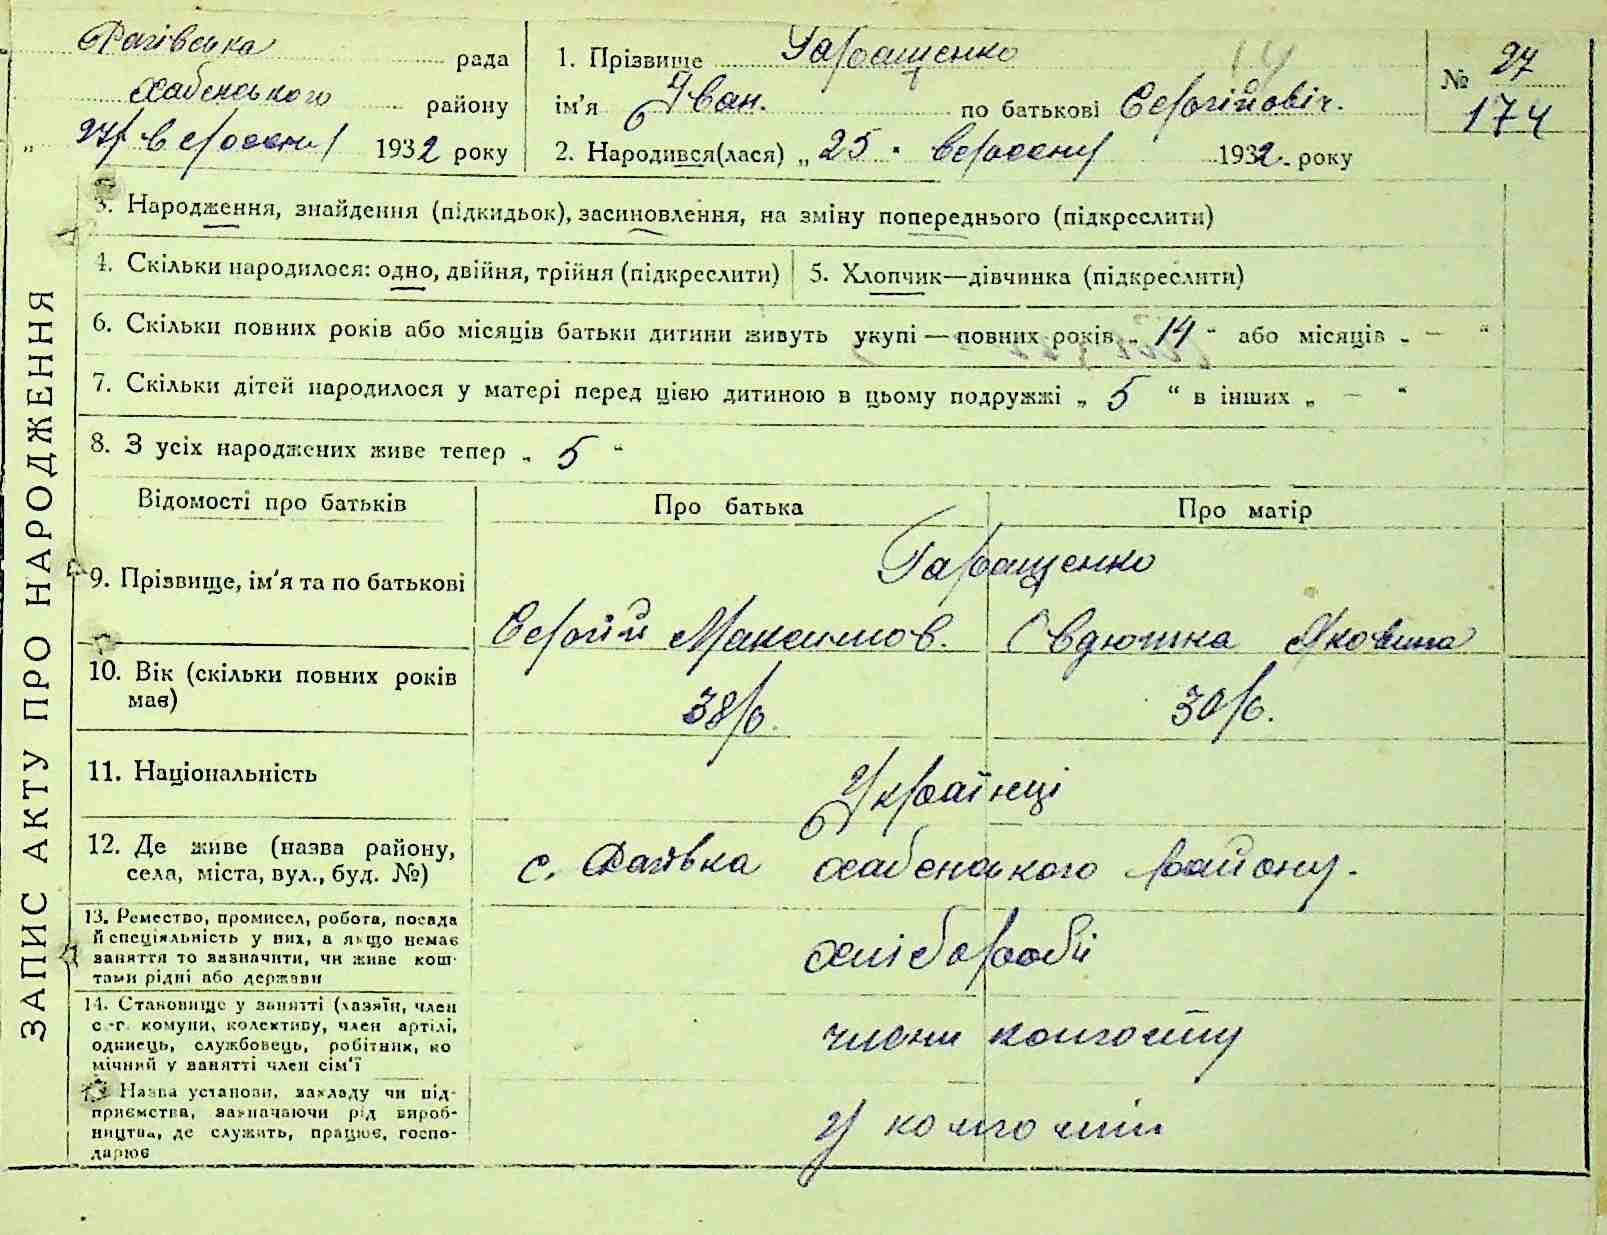 ЗАПИС АКТУ ПРО НАРОДЖЕННЯ
Рагівська рада
Хабенського району
„ 27 вересня 1932 року
1. Прізвище Гаращенко
ім'я Іван. по батькові Сергійовіч.
2. Народився(лася) „ 25 " вересня 1932. року
№ 27
174
3. Народження, знайдення (підкидьок), засиновлення, на зміну попереднього (підкреслити)
4. Скільки народилося: одно, двійня, трійня (підкреслити)
5. Хлопчик—дівчинка (підкреслити)
6. Скільки повних років або місяців батьки дитини живуть укупі — повних років „ 14 " або місяців „ — "
7. Скільки дітей народилося у матері перед цією дитиною в цьому подружжі „ 5 " в інших „ — "
8. З усіх народжених живе тепер „ 5 "
Відомості про батьків Про батька Про матір
9. Прізвище, ім'я та по батькові
Гаращенко
Сергій Максимов. Явдюшка Яковина
10. Вік (скільки повних років має)
38 р. 30 р.
11. Національність
Українці
12. Де живе (назва району,
села, міста, вул., буд. №)
с. Рагівка Хабенського району.
13. Ремество, промисел, робота, посада
й спеціяльність у них, а якщо немає
заняття то зазначити, чи живе кош-
тами рідні або держави
хлібороби
14. Становище у занятті (хазяїн, член
с.-г. комуни, колективу, член артілі,
одинець, службовець, робітник, по
мічний у занятті член сім'ї
члени колгоспу
Назва установи, закладу чи під-
приємства, зазначаючи рід вироб-
ництва, де служить, працює, госпо-
дарює
У колгоспі